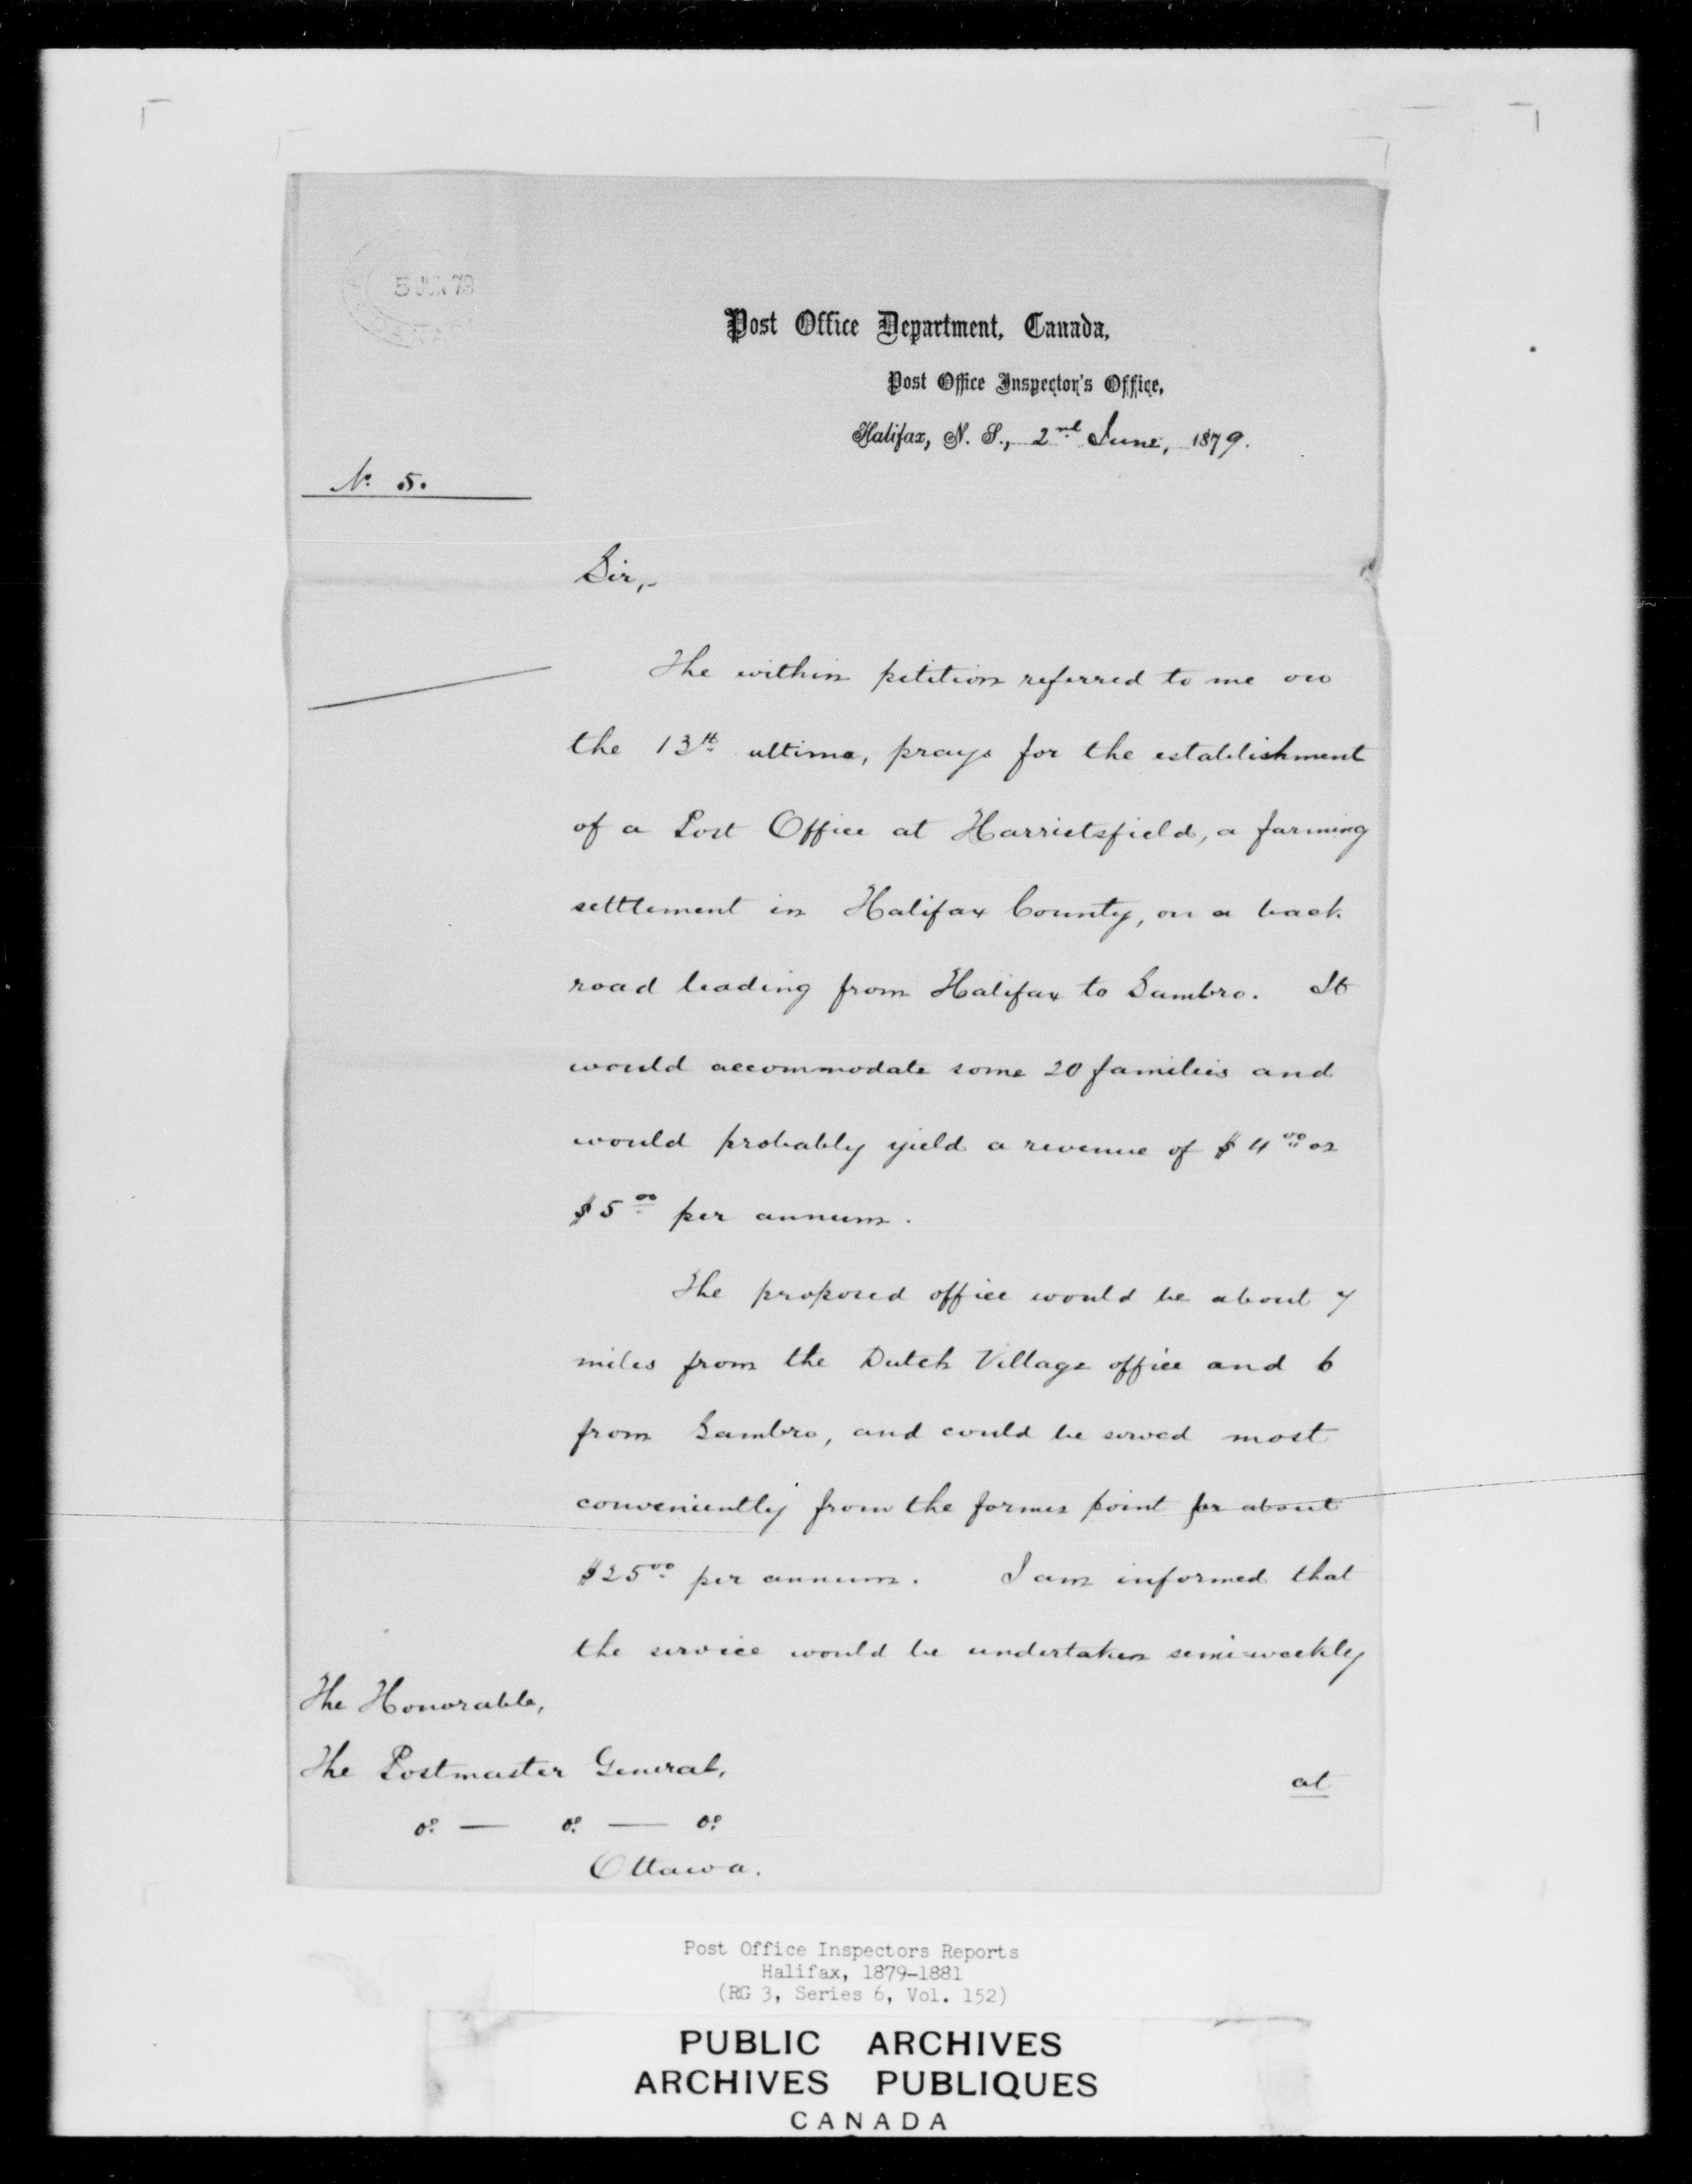 5 JUN 79
Post Office Department, Canada,
Post Office Inspector's Office,
Halifax, N. S., 2nd June, 1879.
No. 5.
Sir,-
The within petition referred to me on
the 13th ultimo, prays for the establishment
of a Post Office at Harrietsfield, a farming
settlement in Halifax County, on a back
road leading from Halifax to Sambro. It
would accommodate some 20 families and
would probably yield a revenue of $4.00 or
$5.00 per annum.
The proposed office would be about 7
miles from the Dutch Village office and 6
from Sambro, and could be served most
conveniently from the former point for about
$25.00 per annum. I am informed that
the service would be undertaken semi-weekly
at
The Honorable,
The Postmaster General,
Ottawa.
Post Office Inspectors Reports
Halifax, 1879-1881
(RG 3, Series 6, Vol. 152)
PUBLIC ARCHIVES
ARCHIVES PUBLIQUES
CANADA